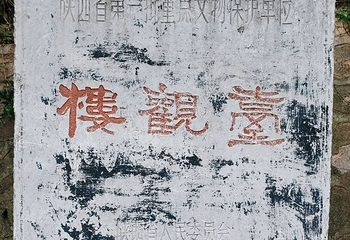 陕西省第一批重点文物保护单位
樓觀臺
陕西省人民委员会